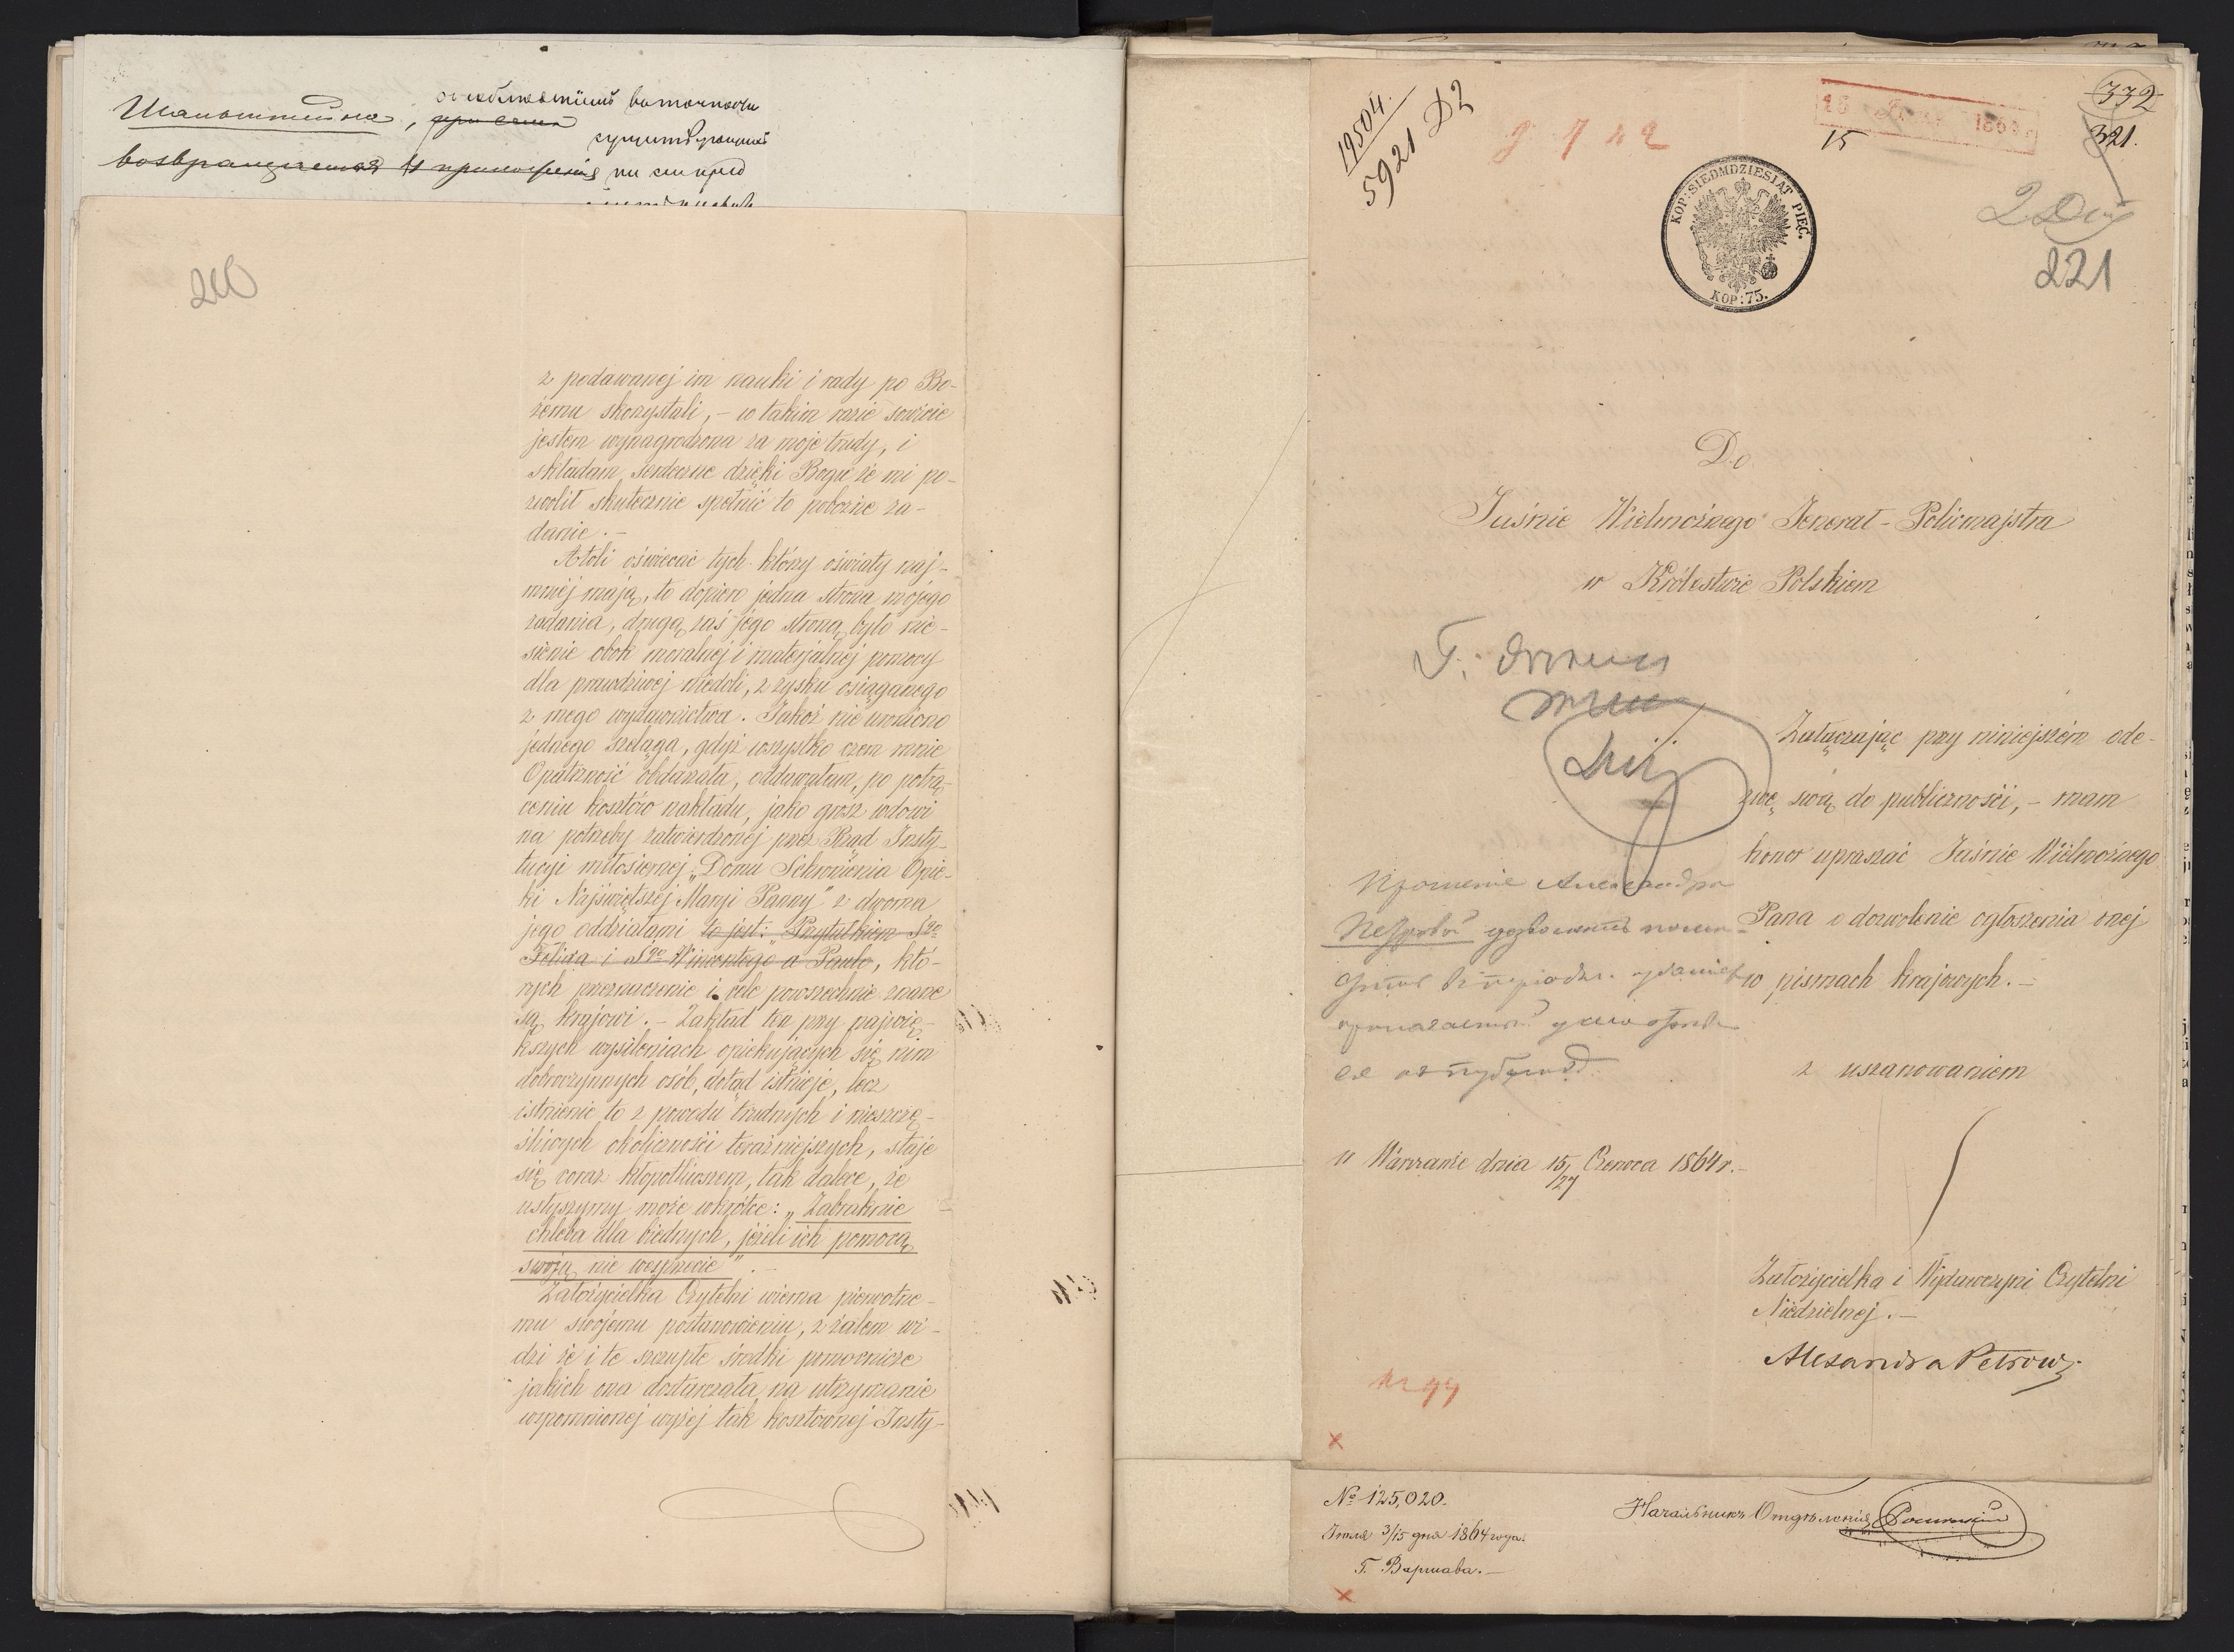 Шапоштейна,
возвращается
220
z podawanej im nauki i rady po Bo-
żemu skorzystali, – w takim razie sowicie
jestem wynagrodzona za moje trudy, i
składam serdeczne dzięki Bogu że mi po-
zwolił skutecznie spełnić to pobożne za-
danie. –
Atoli oświecać tych którzy oświaty naj-
mniej mają, to dopiero jedna strona mojego
zadania, drugą zaś jego stroną było nie-
sienie obok moralnej i materjalnej pomocy
dla prawdziwej niedoli, z zysku osiąganego
z mego wydawnictwa. Jakoż nie uroniono
jednego szeląga, gdyż wszystko czem mnie
Opatrzność obdarzała, oddawałam, po potrą-
ceniu kosztów nakładu, jako grosz wdowi
na potrzeby zatwierdzonej przez Rząd Insty-
tucyi miłosiernej „Domu Schronienia Opie-
ki Najświętszej Marji Panny" z dwoma
jego oddziałami to jest: „Przytułkiem Sgo
Felixa i Sgo Wincentego a Paulo, któ-
rych przeznaczenie i cele powszechnie znane
są krajowi. – Zakład ten przy najwię-
kszych wysileniach opiekujących się nim
dobroczynnych osób, dotąd istnieje, lecz
istnienie to z powodu trudnych i nieszczę-
śliwych okoliczności teraźniejszych, staje
się coraz kłopotliwszem, tak dalece, że
usłyszymy może wkrótce: „Zabraknie
chleba dla biednych, jeżeli ich pomocą
swoją nie wesprzecie". –
Założycielka Czytelni wierna pierwotne-
mu swojemu postanowieniu, z żalem wi-
dzi że i te szczupłe środki pomocnicze
jakich ona dostarczała na utrzymanie
wspomnionej wyżej tak kosztownej Insty-
19504.
5921 D2
15
332
321.
221
KOP: SIEDMDZIESIAT PIĘĆ.
KOP: 75.
Do
Jaśnie Wielmożnego Jenerał-Policmajstra
w Królestwie Polskiem
Załączając przy niniejszém ode-
zwę swą do publiczności, – mam
honor upraszać Jaśnie Wielmożnego
Pana o dozwolenie ogłoszenia onej
w pismach krajowych. –
z uszanowaniem
w Warszawie dnia 15/27 Czerwca 1864 r. –
Założycielka i Wydawczyni Czytelni
Niedzielnej. –
Alexandra Petrow.
№ 125,020.
Іюля 3/15 дня 1864 года.
Г. Варшава. –
Начальникъ Отдѣленія